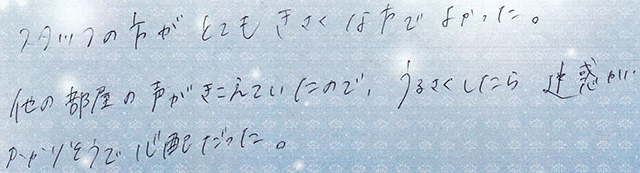 スタッフの方がとてもきさくな方でよかった。
他の部屋の声がきこえていたので、うるさくしたら迷惑が
かかりそうで心配だった。